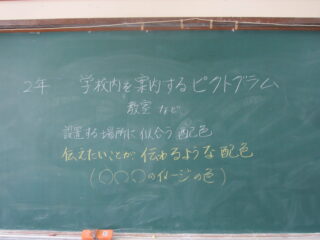 2年 学校内を案内するピクトグラム
教室 など
設置する場所に似合う配色
伝えたいことが伝わるような配色
(〇〇〇のイメージの色)